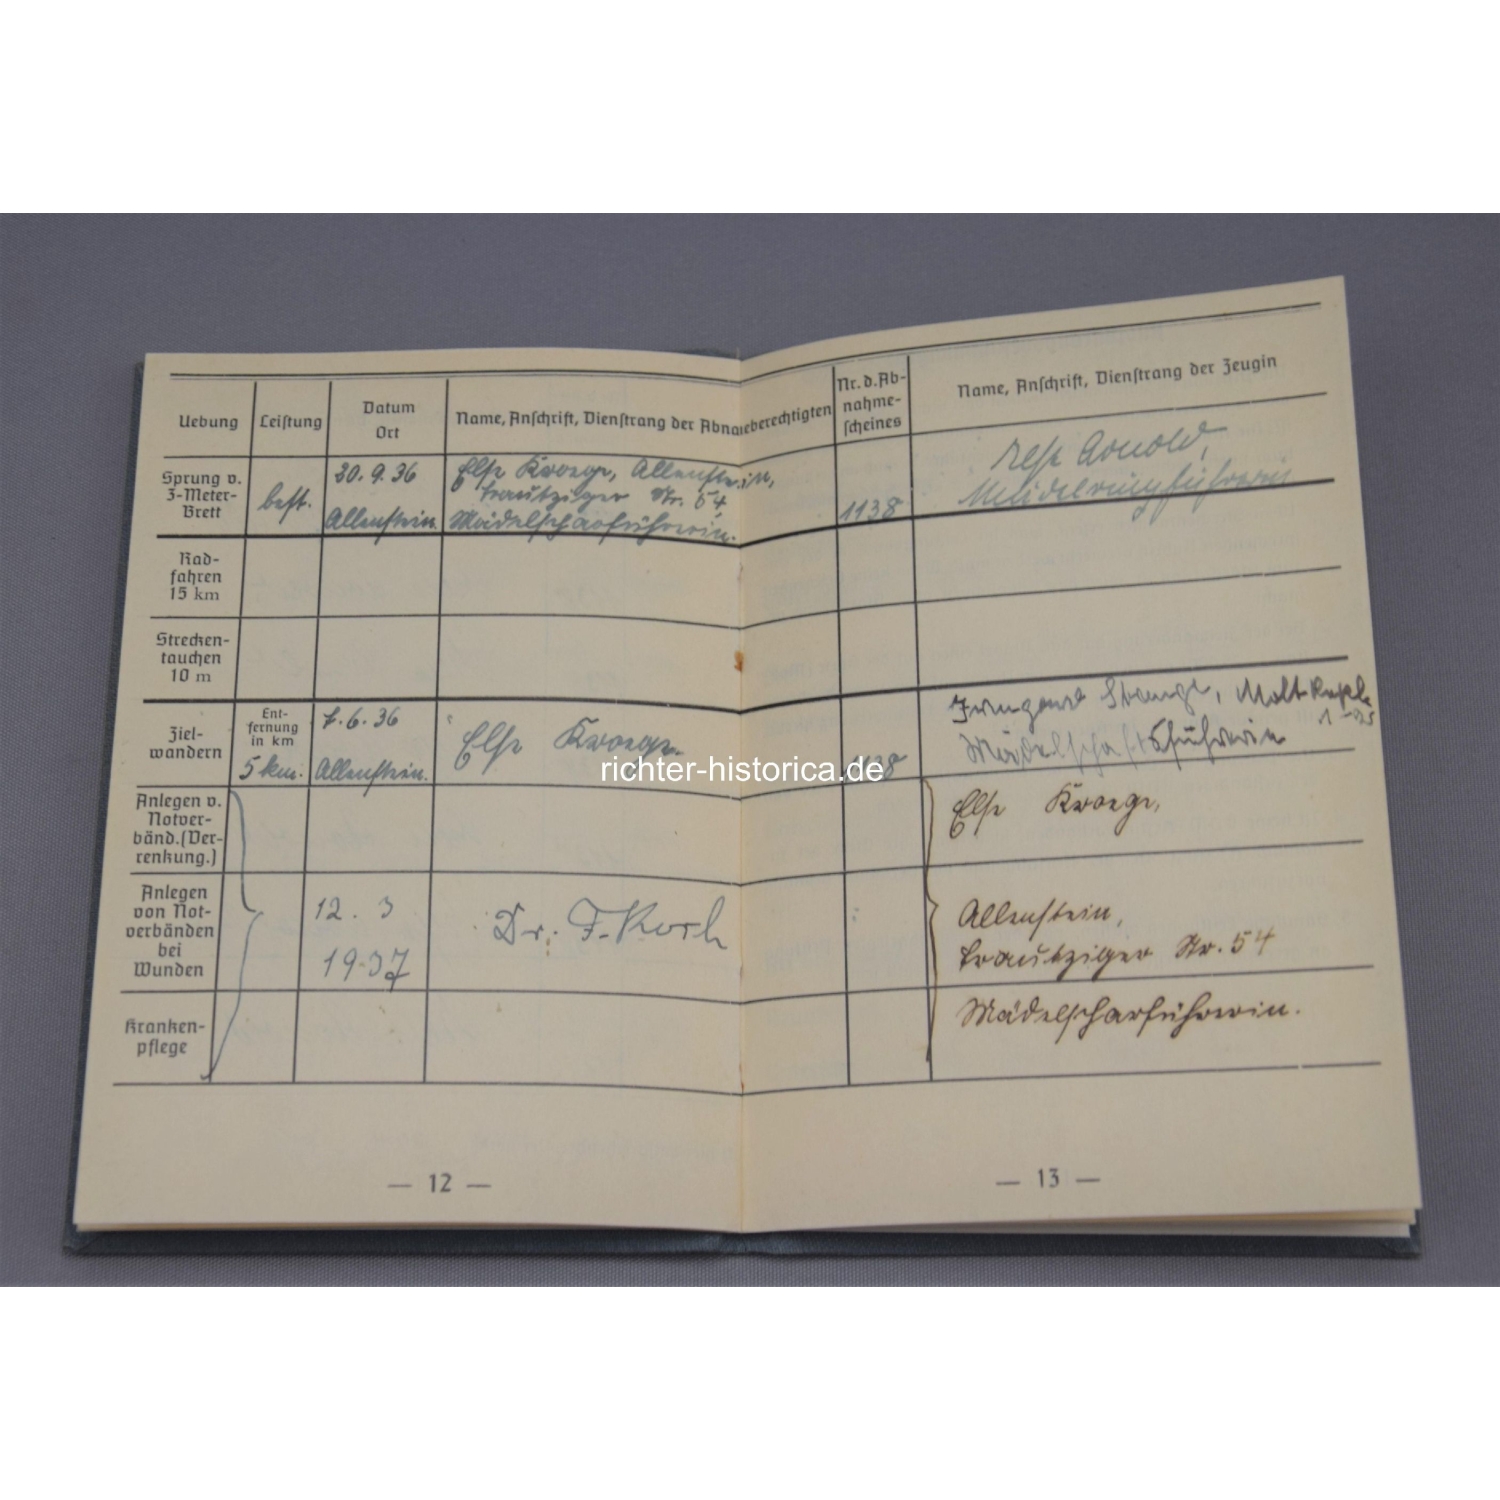 Uebung
Leistung
Datum
Ort
Name, Anschrift, Dienstrang der Abnahmeberechtigten
Nr. d. Ab-
nahme-
scheines
Name, Anschrift, Dienstrang der Zeugin
Sprung v.
3-Meter-
Brett
best.
30.9.36
Allenstein.
Else Kroege, Allenstein,
Trautziger Str. 54,
Mädelscharführerin.
1138
Arnold,
Rad-
fahren
15 km
Strecken-
tauchen
10 m
Ziel-
wandern
Ent-
fernung
in km
5 km.
7.6.36
Allenstein.
Else Kroege.
1138
Irmgard
Mädelschaftsführerin
Anlegen v.
Notver-
bänd. (Ver-
renkung.)
Else Kroege,
Anlegen
von Not-
verbänden
bei
Wunden
12. 3
1937
Dr. F. Koch
Allenstein,
Trautziger Str. 54
Kranken-
pflege
Mädelscharführerin.
— 12 —
— 13 —
richter-historica.de